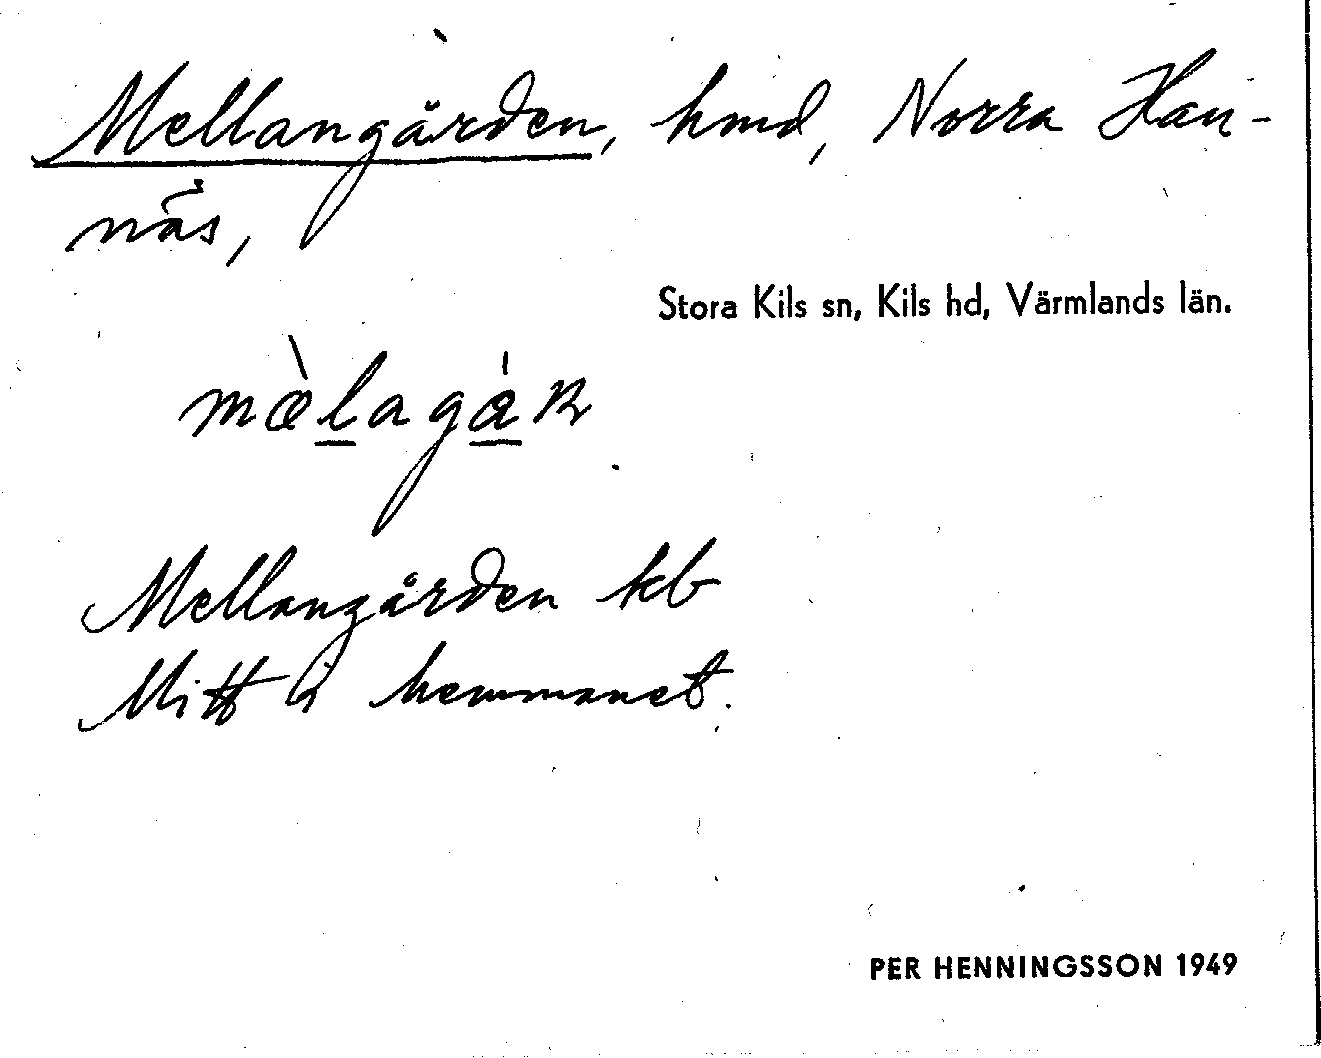 Mellangården, hmd, Norra Han-
näs,
Stora Kils sn, Kils hd, Värmlands län.
Mellangården kb
Mitt i hemmanet.
PER HENNINGSSON 1949